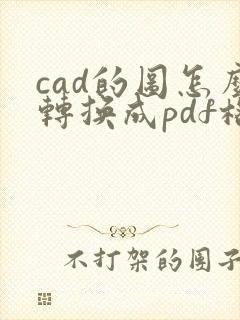 cad的圖怎麼
轉換成pdf格
不打架的團子